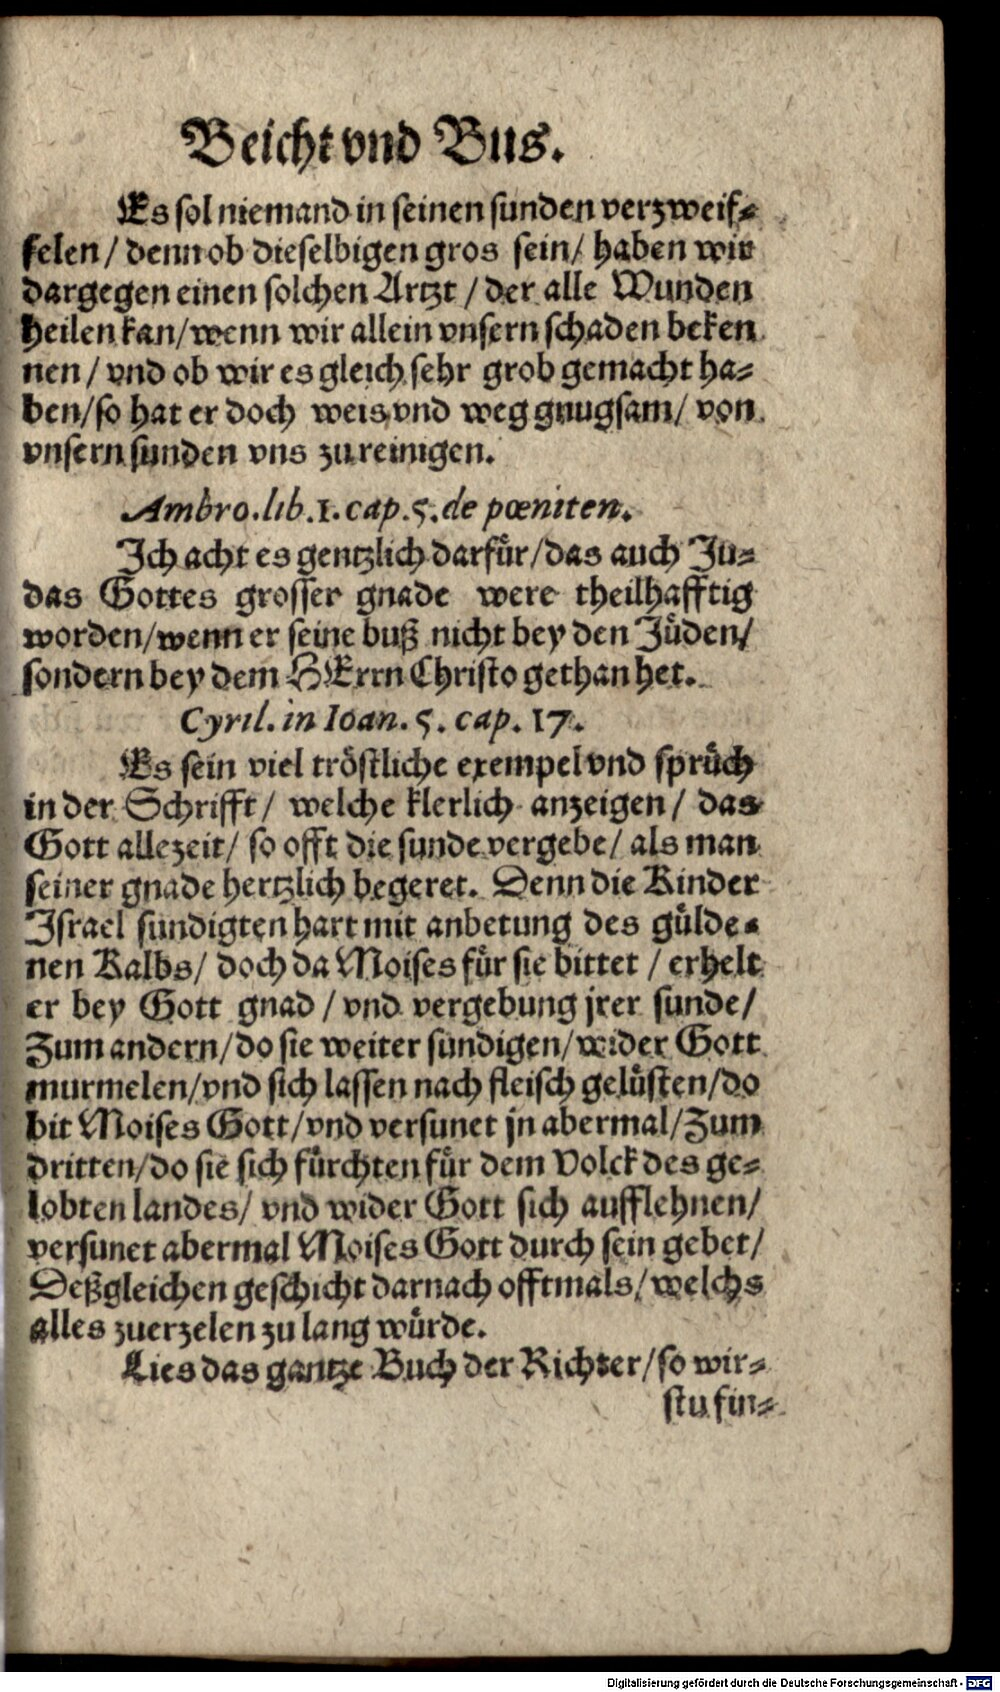 Beicht vnd Bus.
Es sol niemand in seinen sunden verzweif⸗
felen / denn ob dieselbigen gros sein / haben wir
dargegen einen solchen Artzt / der alle Wunden
heilen kan / wenn wir allein vnsern schaden beken
nen / vnd ob wir es gleich sehr grob gemacht ha⸗
ben / so hat er doch weis vnd weg gnugsam / von
vnsern sunden vns zu reinigen.
Ambro. lib. 1. cap. 5. de pœniten.
Ich acht es gentzlich darfür / das auch Ju⸗
das Gottes grosser gnade were theilhafftig
worden / wenn er seine buß nicht bey den Jüden /
sondern bey dem HErrn Christo gethan het.
Cyril. in Ioan. 5. cap. 17.
Es sein viel tröstliche exempel vnd sprüch
in der Schrifft / welche klerlich anzeigen / das
Gott allezeit / so offt die sunde vergebe / als man
seiner gnade hertzlich begeret. Denn die Kinder
Israel sundigten hart mit anbetung des gülde⸗
nen Kalbs / doch da Moises für sie bittet / erhelt
er bey Gott gnad / vnd vergebung jrer sunde /
Zum andern / do sie weiter sündigen / wider Gott
murmelen / vnd sich lassen nach fleisch gelüsten / do
bit Moises Gott / vnd versunet jn abermal / Zum
dritten / do sie sich fürchten für dem Volck des ge⸗
lobten landes / vnd wider Gott sich aufflehnen /
versunet abermal Moises Gott durch sein gebet /
Deßgleichen geschicht darnach offtmals / welchs
alles zuerzelen zu lang würde.
Lies das gantze Buch der Richter / so wir⸗
stu fin⸗
Digitalisierung gefördert durch die Deutsche Forschungsgemeinschaft - DFG